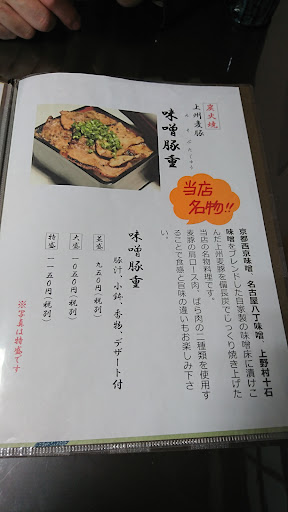 炭火焼
上州麦豚
味噌豚重
みそぶたじゅう
当店
名物!!
京都西京味噌、名古屋八丁味噌、上野村十石
味噌をブレンドした自家製の味噌床に漬けこ
んだ上州麦豚を備長炭でじっくり焼き上げた
当店の名物料理です。
麦豚の肩ロース肉、ばら肉の二種類を使用す
ることで食感と旨味の違いもお楽しみ下さ
い。
味噌豚重
豚汁、小鉢、香物、デザート付
並盛 九五〇円(税別)
大盛 一〇五〇円(税別)
特盛 一一五〇円(税別)
※写真は特盛です